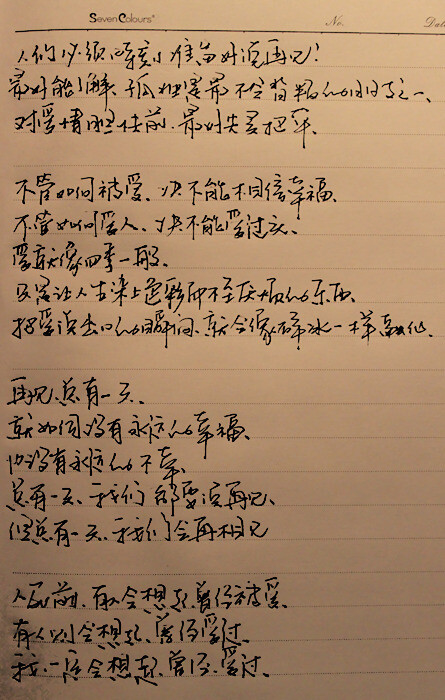 SevenColours
No.
Date
人们必须时刻准备好说再见!
最好能了解、孤独是最不会背叛的朋友之一、
对爱情胆怯前、最好先买把伞、
不管如何被爱、决不能相信幸福、
不管如何爱人、决不能爱过头、
爱就像四季一般、
只是让人生染上色彩而不至厌烦的东西、
把爱说出口的瞬间、就会像碎冰一样融化、
再见总有一天、
就如同没有永远的幸福、
也没有永远的不幸、
总有一天、我们都要说再见、
但总有一天、我们会再相见
人死前、有人会想起、曾经被爱、
有人则会想起、曾经爱过、
我、一定会想起、曾经、爱过、